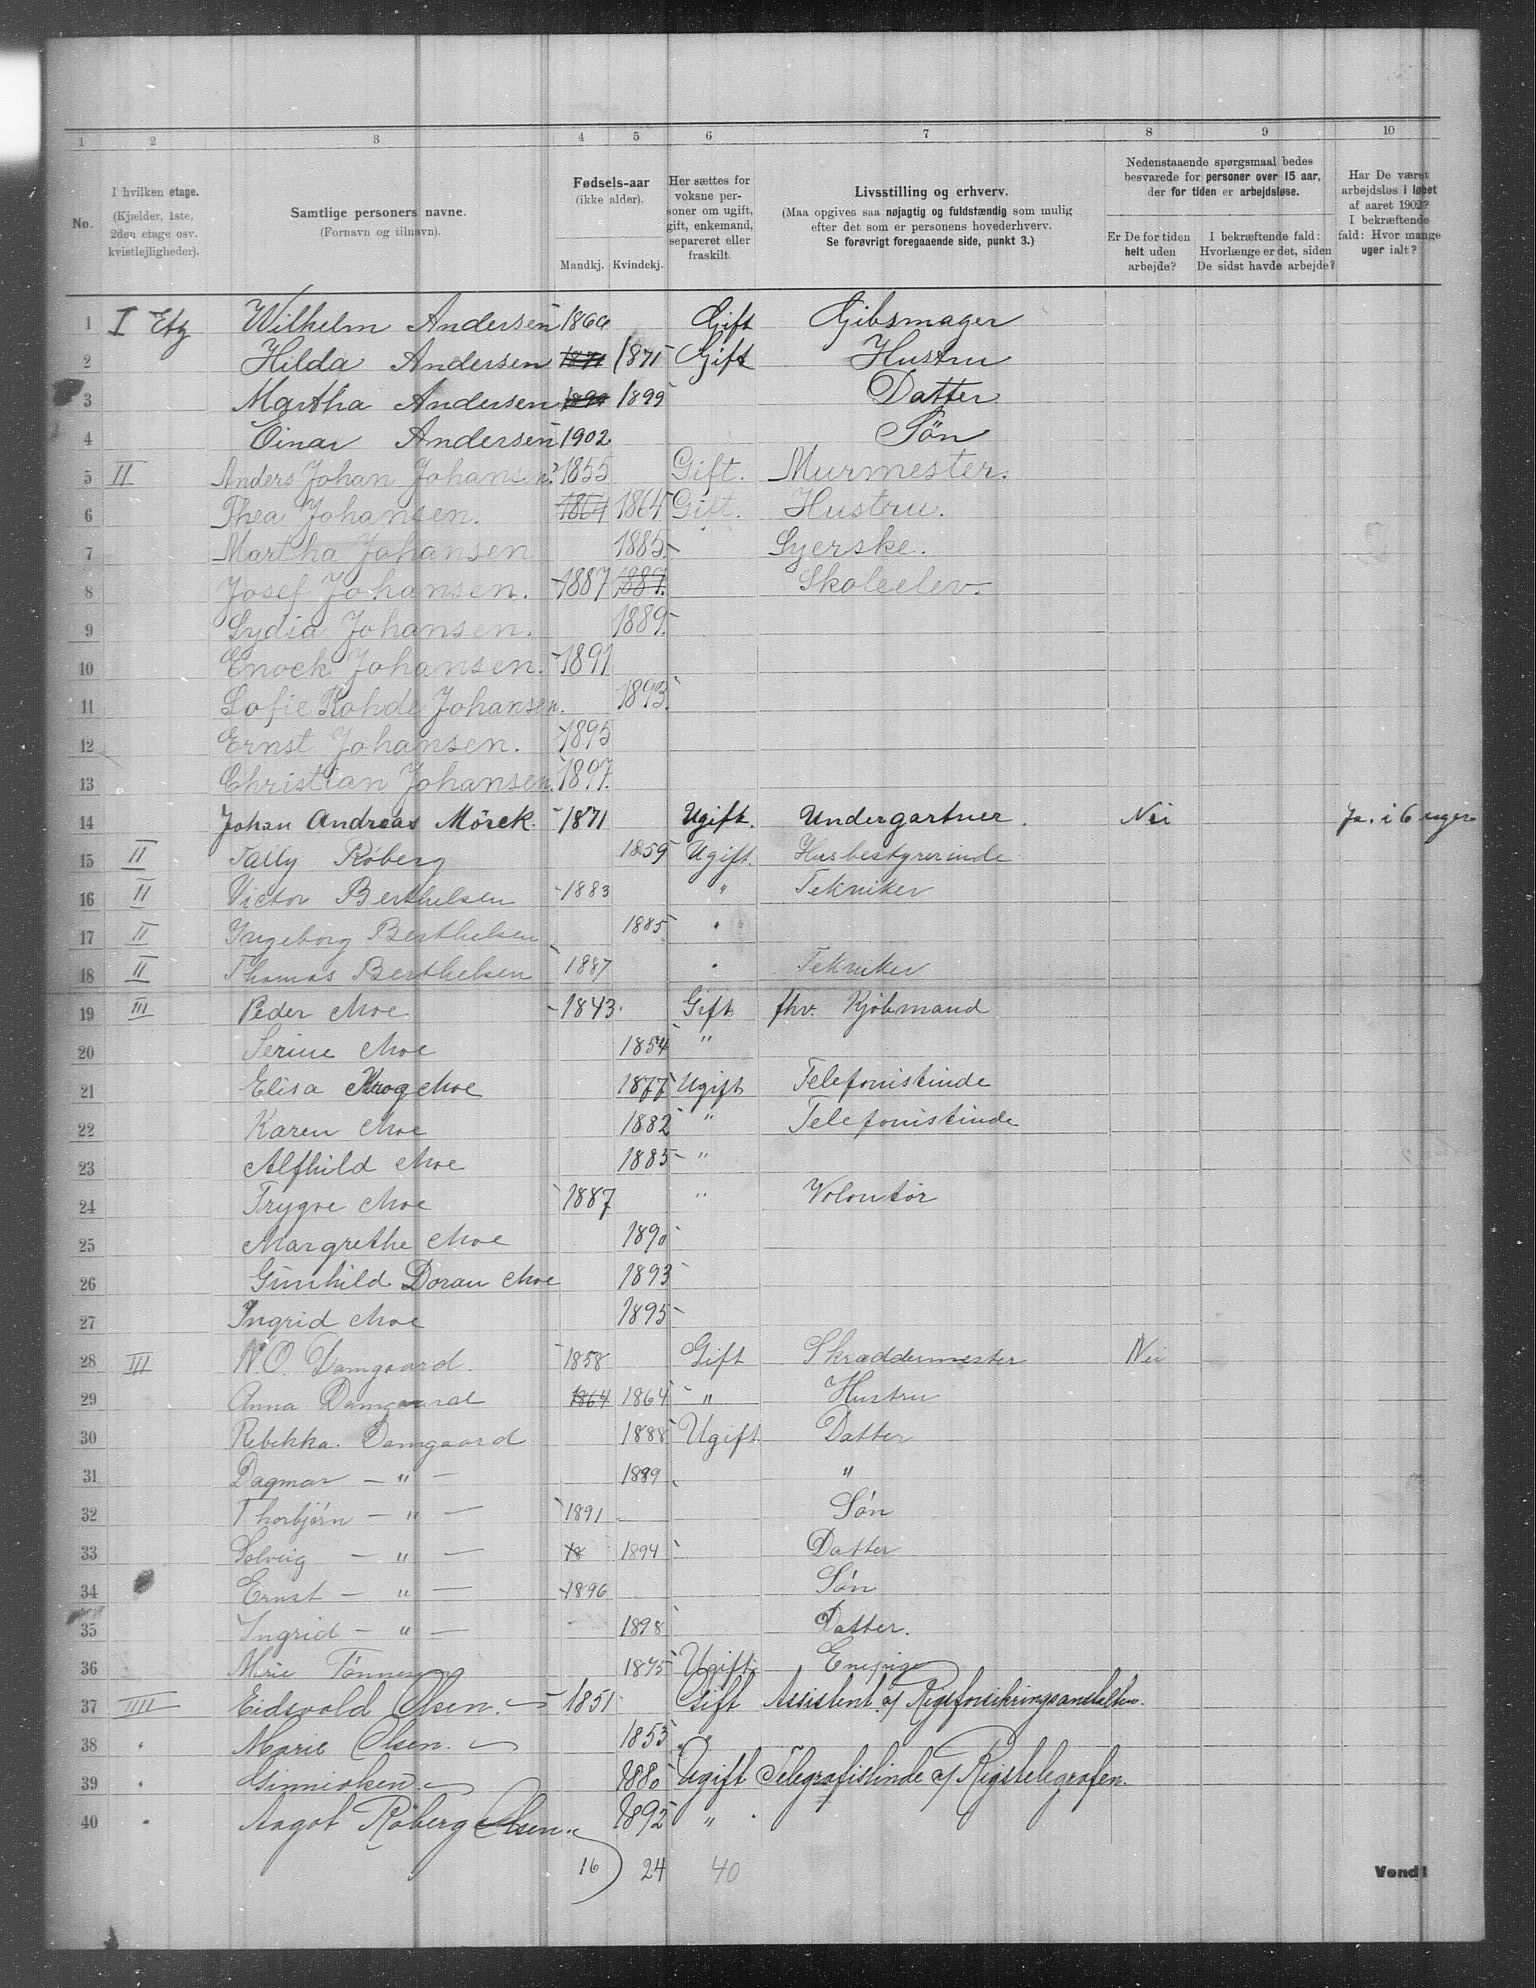 1 2 3 4 5 6 7 8 9 10
No.
I hvilken etage.
(Kjælder, 1ste,
2den etage osv.
kvistlejligheder).
Samtlige personers navne.
(Fornavn og tilnavn).
Fødsels-aar
(ikke alder).
Mandkj. Kvindekj.
Her sættes for
voksne per-
soner om ugift,
gift, enkemand,
separeret eller
fraskilt.
Livsstilling og erhverv.
(Maa opgives saa nøjagtig og fuldstændig som mulig
efter det som er personens hovederhverv.
Se forøvrigt foregaaende side, punkt 3.)
Nedenstaaende spørgsmaal bedes
besvarede for personer over 15 aar,
der for tiden er arbejdsløse.
Er De for tiden
helt uden
arbejde?
I bekræftende fald:
Hvorlænge er det, siden
De sidst havde arbejde?
Har De været
arbejdsløs i løbet
af aaret 1902?
I bekræftende
fald: Hvor mange
uger ialt?
1 I Etg Wilhelm Andersen 1866 Gift Gibsmager
2 Hilda Andersen 1871 1871 Gift Hustru
3 Martha Andersen 1899 1899 Datter
4 Einar Andersen 1902 Søn
5 II Anders Johan Johansen 1855 Gift. Murmester.
6 Thea Johansen. 1864 1864 Gift. Hustru.
7 Martha Johansen 1885 Syerske.
8 Josef Johansen. 1887 1887. Skoleelev.
9 Lydia Johansen. 1889.
10 Enock Johansen. 1891
11 Sofie Rohde Johansen. 1893.
12 Ernst Johansen. 1895
13 Christian Johansen. 1897.
14 Johan Andreas Mörck. 1871 Ugift. Undergartner. Nei Ja. i 6 uger
15 II Tally Røberg 1859 Ugift. Husbestyrerinde
16 II Victor Berthelsen 1883 " Tekniker
17 II Ingeborg Berthelsen 1885 "
18 II Thomas Berthelsen 1887 " Tekniker
19 III Peder Moe 1843. Gift fhv. Kjøbmand
20 Serine Moe 1854 "
21 Elisa Krog Moe 1877 Ugift Telefonistinde
22 Karen Moe 1882 " Telefonistinde
23 Alfhild Moe 1885 "
24 Trygve Moe 1887 " Volontør
25 Margrethe Moe 1890
26 Gunhild Doran Moe 1893
27 Ingrid Moe 1895
28 III N. O. Damgaard. 1858 Gift Skræddermester Nei
29 Anna Damgaard 1864 1864 " Hustru
30 Rebekka. Damgaard 1888 Ugift. Datter
31 Dagmar — " — 1889 "
32 Thorbjørn — " — 1891 Søn
33 Solveig — " — 18 1894 Datter
34 Ernst — " — 1896 Søn
35 Ingrid — " — 1898 Datter.
36 Marie Tønnesen 1875 Ugift Enepige
37 IIII Eidsvold Olsen. 1851 Gift Assistent. af Rigsforsikringsanstalten.
38 " Marie Olsen. 1853 "
39 " 1880 Ugift Telegrafistinde af Rigstelegrafen.
40 " Aagot Røberg Olsen. 1892 "
16 24 40
Vend!